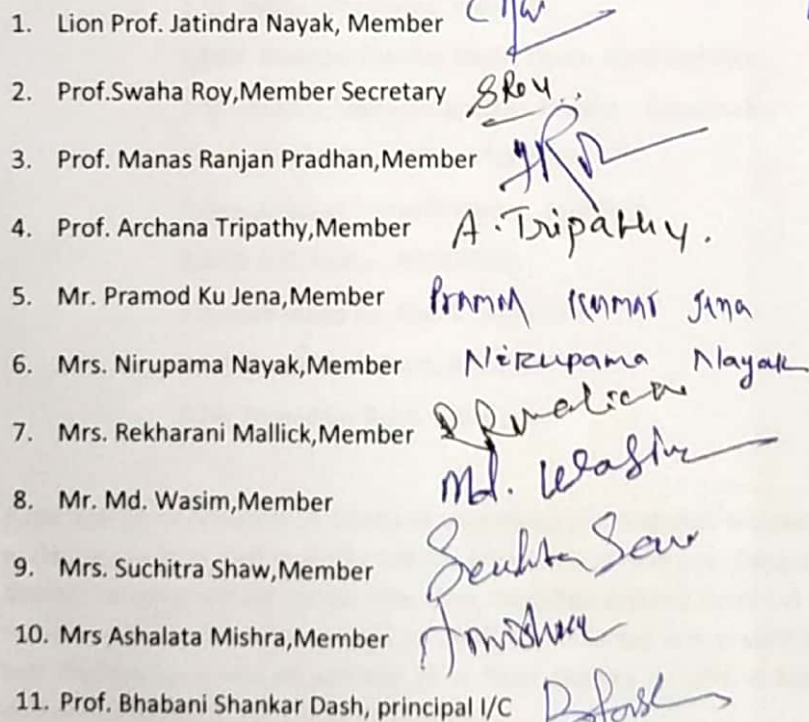 1. Lion Prof. Jatindra Nayak, Member
2. Prof.Swaha Roy,Member Secretary SRoy..
3. Prof. Manas Ranjan Pradhan,Member
4. Prof. Archana Tripathy,Member A. Tripathy.
5. Mr. Pramod Ku Jena,Member Pramod Kumar Jena
6. Mrs. Nirupama Nayak,Member Nirupama Nayak
7. Mrs. Rekharani Mallick,Member
8. Mr. Md. Wasim,Member Md. Wasim
9. Mrs. Suchitra Shaw,Member
10. Mrs Ashalata Mishra,Member AMishra
11. Prof. Bhabani Shankar Dash, principal I/C